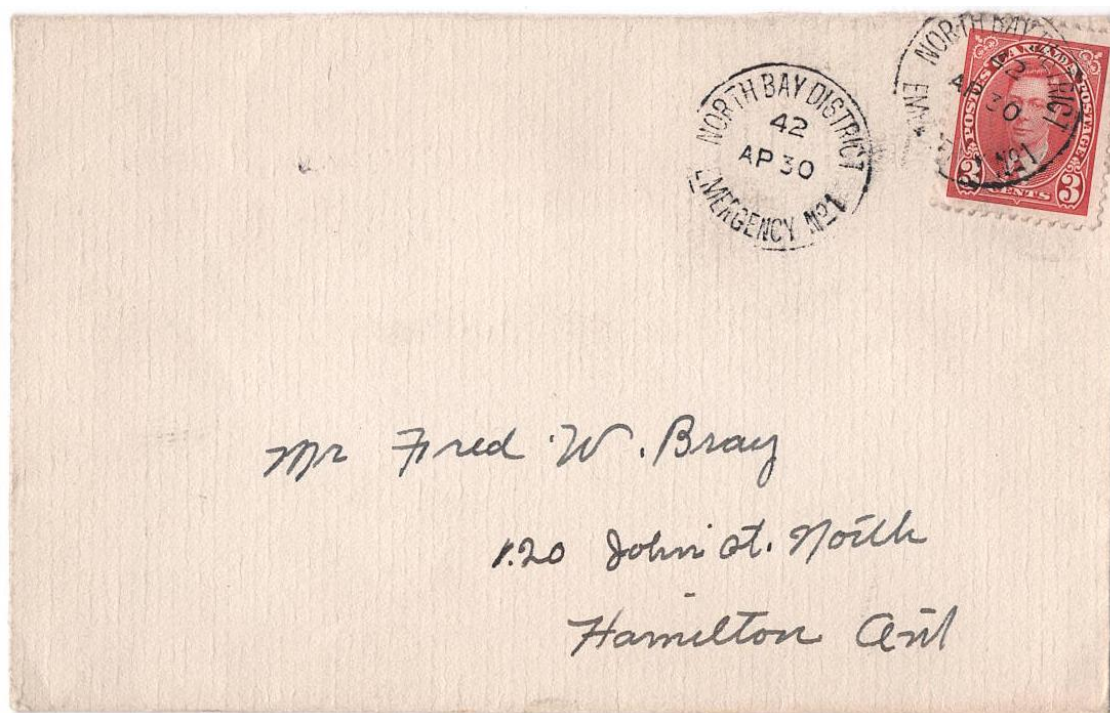 NORTH BAY DISTRICT
42
AP 30
EMERGENCY No1
NORTH BAY DISTRICT
AP 30
No1
POSTES CANADA POSTAGE
3 CENTS 3
Mr Fred W. Bray
120 John St. North
Hamilton Ont